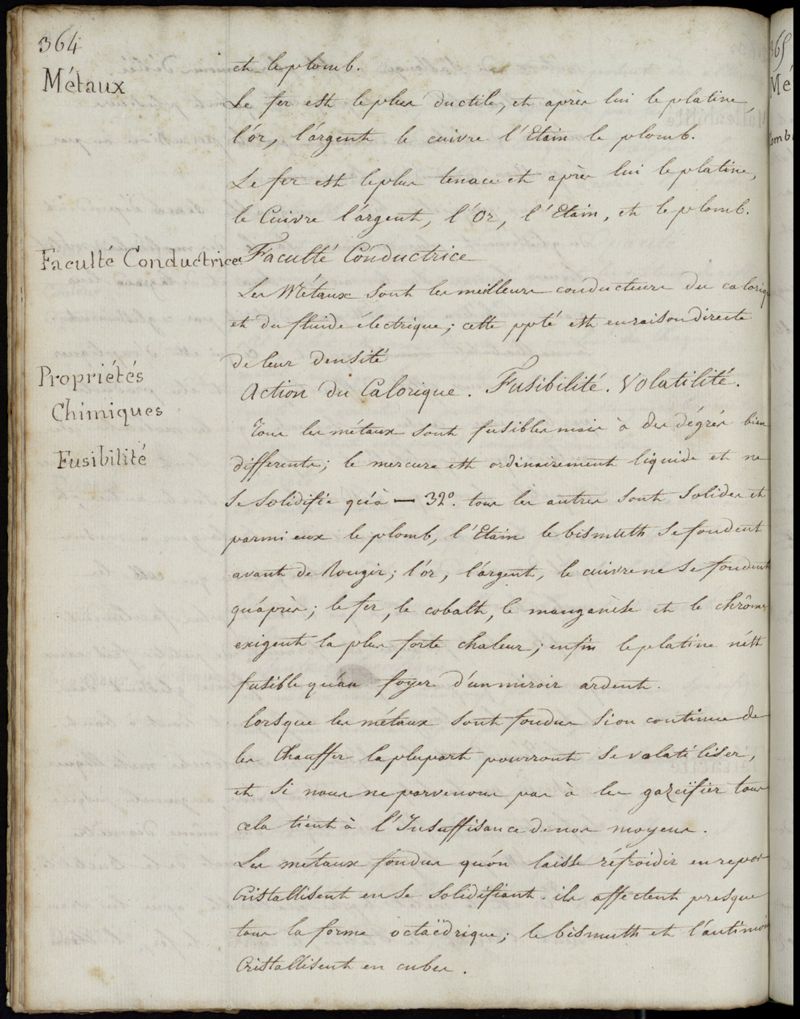 364
Métaux
et le plomb.
Le fer est le plus ductile, et après lui le platine,
l'or, l'argent le cuivre l'Etain le plomb.
Le fer est le plus tenace et après lui le platine,
le Cuivre l'argent, l'Or, l'Etain, et le plomb.
Faculté Conductrice
Faculté Conductrice
Les Métaux sont les meilleurs conducteurs du calorique
et du fluide électrique; cette ppté est en raison directe
de leur densité
Propriétés
Chimiques
Action du Calorique. Fusibilité. Volatilité.
Fusibilité
Tous les métaux sont fusibles mais à des dégrés bien
differents; le mercure est ordinairement liquide et ne
se solidifie qu'à — 32°. tous les autres sont solides et
parmi eux le plomb, l'Etain le bismuth se fondent
avant de Rougir; l'or, l'argent, le cuivre ne se fondent
qu'après; le fer, le cobalt, le manganèse et le chrôme
exigent la plus forte chaleur; enfin le platine n'est
fusible qu'au foyer d'un miroir ardent.
lorsque les métaux sont fondus si on continue de
les chauffer la plupart pourront se volatiliser,
et si nous ne parvenons pas à les gazéifier tous
cela tient à l'Insuffisance de nos moyens.
Les métaux fondus qu'on laisse réfroidir en repos
cristallisent en se solidifiant. ils affectent presque
tous la forme octaëdrique; le bismuth et l'antimoi
cristallisent en cubes.
365
Mé